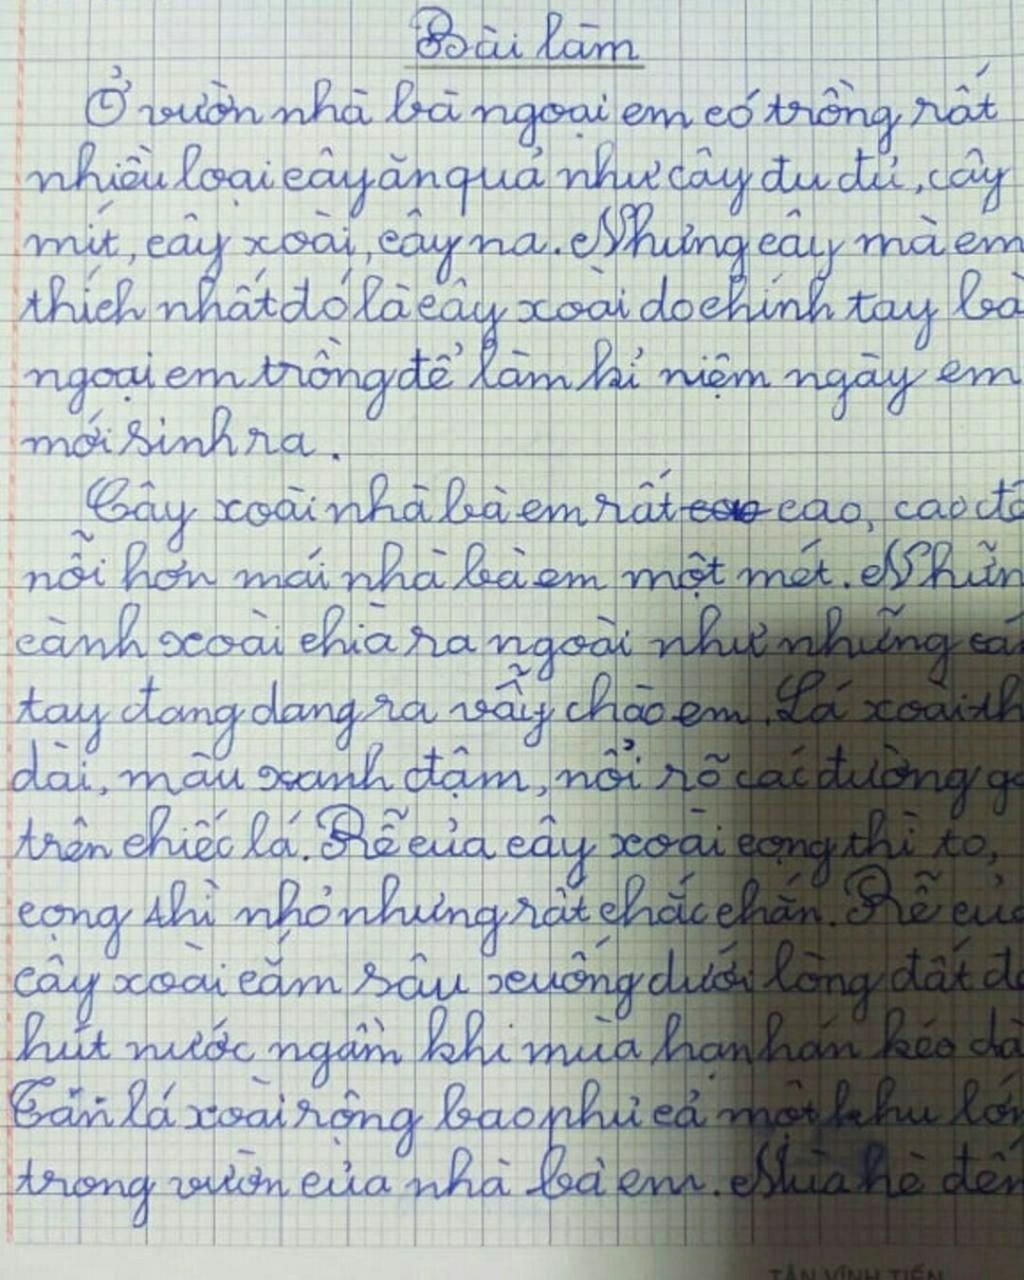 Bài làm
Ở vườn nhà bà ngoại em có trồng rất
nhiều loại cây ăn quả như cây đu đủ, cây
mít, cây xoài, cây na. Nhưng cây mà em
thích nhất đó là cây xoài do chính tay bà
ngoại em trồng để làm kỉ niệm ngày em
mới sinh ra.
Cây xoài nhà bà em rất cao, cao đế
nỗi hơn mái nhà bà em một mét. Nhữn
cành xoài chìa ra ngoài như những cá
tay đang dang ra vẫy chào em. Lá xoài th
dài, màu xanh đậm, nổi rõ các đường g
trên chiếc lá. Rễ của cây xoài cọng thì to,
cọng thì nhỏ nhưng rất chắc chắn. Rễ củ
cây xoài cắm sâu xuống dưới lòng đất để
hút nước ngầm khi mùa hạn hán kéo dà
Tán lá xoài rộng bao phủ cả một khu lớn
trong vườn của nhà bà em. Mùa hè đến
TÂN VĨNH TIẾN